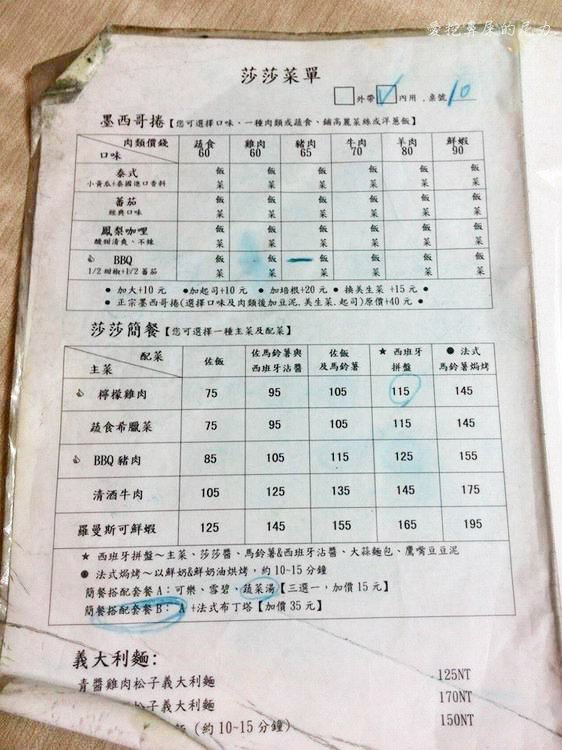 愛挖鼻屎的尼力
莎莎菜單
外帶 內用.桌號 10
墨西哥捲【您可選擇口味、一種肉類或蔬食、鋪高麗菜絲或洋蔥飯】
肉類價錢 口味 蔬食 60 雞肉 60 豬肉 65 牛肉 70 羊肉 80 鮮蝦 90
泰式 飯 飯 飯 飯 飯 飯
小黃瓜+泰國進口香料 菜 菜 菜 菜 菜 菜
蕃茄 飯 飯 飯 飯 飯 飯
經典口味 菜 菜 菜 菜 菜 菜
鳳梨咖哩 飯 飯 飯 飯 飯 飯
酸甜清爽、不辣 菜 菜 菜 菜 菜 菜
BBQ 飯 飯 飯 飯 飯 飯
1/2甜椒+1/2蕃茄 菜 菜 菜 菜 菜 菜
● 加大+10元 ●加起司+10元 ● 加培根+20元 ● 換美生菜 +15元 ●
● 正宗墨西哥捲(選擇口味及肉類後加豆泥.美生菜.起司)原價+40元 ●
莎莎簡餐【您可選擇一種主菜及配菜】
配菜 主菜 佐飯 佐馬鈴薯與西班牙沾醬 佐飯及馬鈴薯 ★ 西班牙拼盤 ● 法式馬鈴薯焗烤
檸檬雞肉 75 95 105 115 145
蔬食希臘菜 75 95 105 115 145
BBQ 豬肉 85 105 115 125 155
清酒牛肉 105 125 135 145 175
羅曼斯可鮮蝦 125 145 155 165 195
★ 西班牙拼盤～主菜、莎莎醬、馬鈴薯&西班牙沾醬、大蒜麵包、鷹嘴豆豆泥
● 法式焗烤～以鮮奶&鮮奶油烘烤，約10~15分鐘
簡餐搭配套餐A：可樂、雪碧、蔬菜湯【三選一，加價15元】
簡餐搭配套餐B： A +法式布丁塔【加價35元】
義大利麵：
青醬雞肉松子義大利麵 125NT
松子義大利麵 170NT
(約10~15分鐘) 150NT